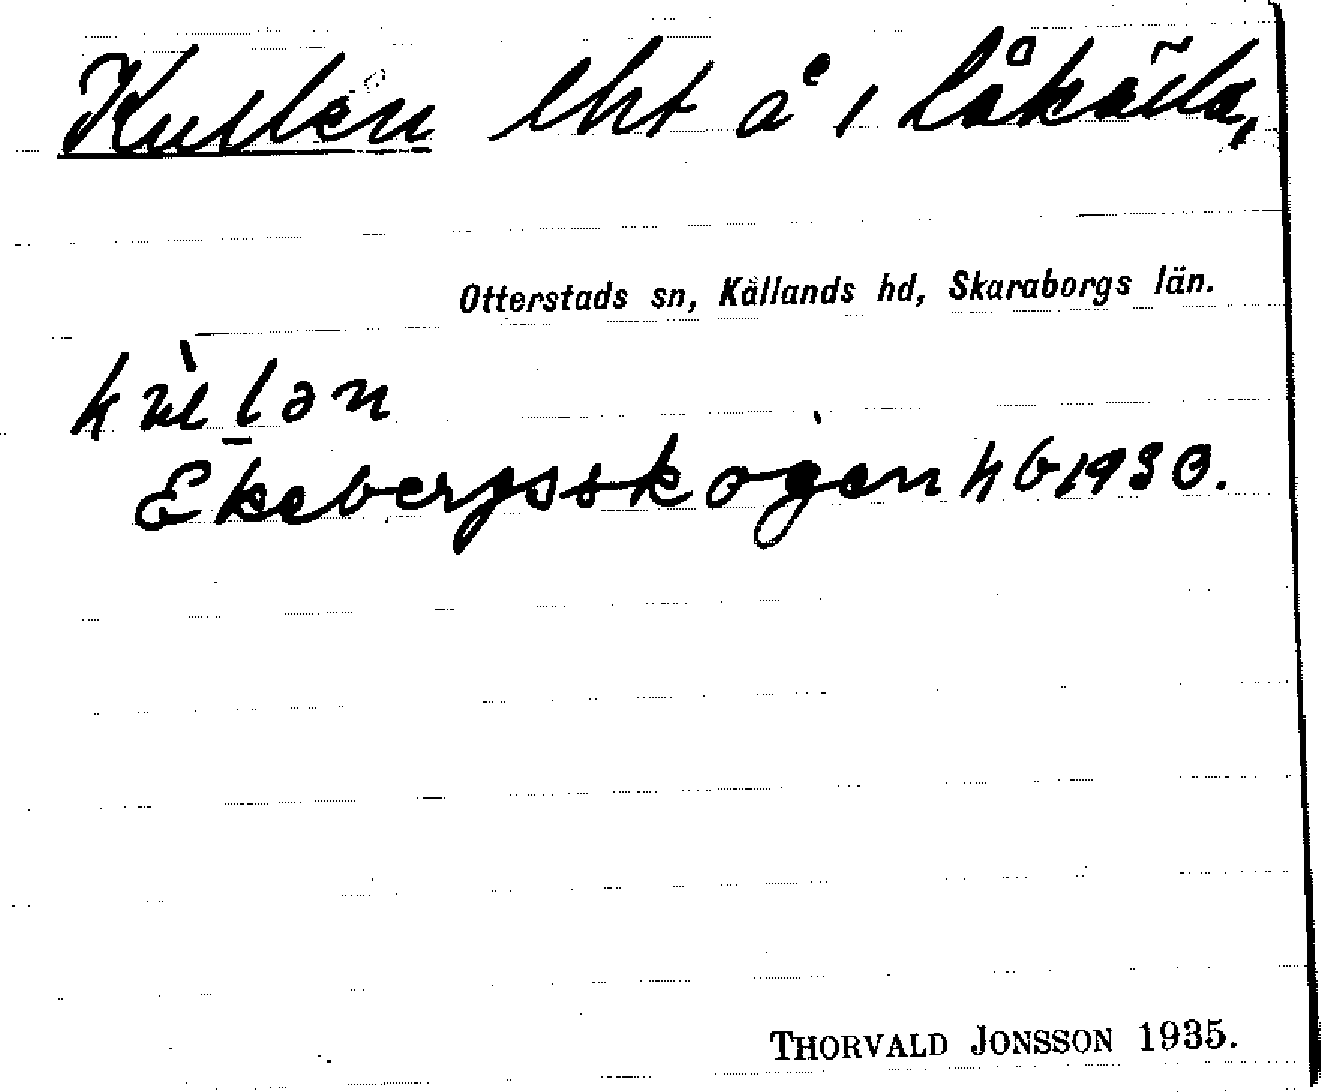 Kullen lht å 1 Låkälla,
Otterstads sn, Kållands hd, Skaraborgs län.
kùl̠ən
Ekebergsskogen hb 1930.
THORVALD JONSSON 1935.